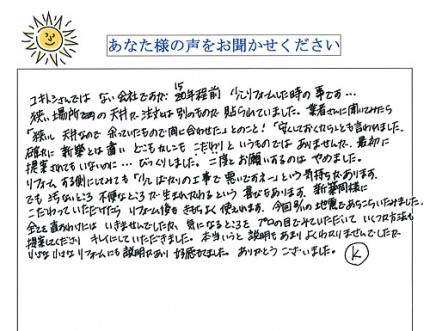 あなた様の声をお聞かせください
ユキトシさんではない会社ですが 15 20年程前 少しリフォームした時の事です…
狭い場所での天井が注文とは別のものが貼られていました。業者さんに聞いてみたら
「狭い天井なので余っていたもので間に合わせた」とのこと!「安くしておくから」とも言われました。
確かに新築とは違い どこもかしこも こだわり というものではありませんが、最初に
提案されてもいないのに… びっくりしました。二度とお願いするのはやめました。
リフォームする側にしてみても「少しばかりの工事で悪いですネ…」という気持ちがあります。
でも 小さないところ 不便なところが生まれかわるという喜びもあります。新築同様に
こだわっていただけたら リフォーム後も きもちよく使えます。今回 の地震であちこちいたみました。
全てを直すわけには いきませんでしたが、気になるところを プロの目でみていただいて いくつか方法も
提案してくださり キレイにしていただきました。本当いうと 説明も あまり よくわかりませんでしたが
小さな小さなリフォームにも説明があり 好感もてました。ありがとうございました。
K